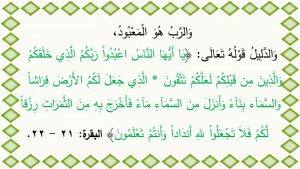 وَالرَّبُّ هُوَ الْمَعْبُودُ،
وَالدَّلِيلُ قَوْلُهُ تَعَالَى: ﴿يَا أَيُّهَا النَّاسُ اعْبُدُواْ رَبَّكُمُ الَّذِي خَلَقَكُمْ
وَالَّذِينَ مِن قَبْلِكُمْ لَعَلَّكُمْ تَتَّقُونَ * الَّذِي جَعَلَ لَكُمُ الأَرْضَ فِرَاشاً
وَالسَّمَاء بِنَاءً وَأَنزَلَ مِنَ السَّمَاء مَاءً فَأَخْرَجَ بِهِ مِنَ الثَّمَرَاتِ رِزْقاً
لَّكُمْ فَلاَ تَجْعَلُواْ للهِ أَندَاداً وَأَنتُمْ تَعْلَمُونَ﴾ البقرة: ٢١ – ٢٢.